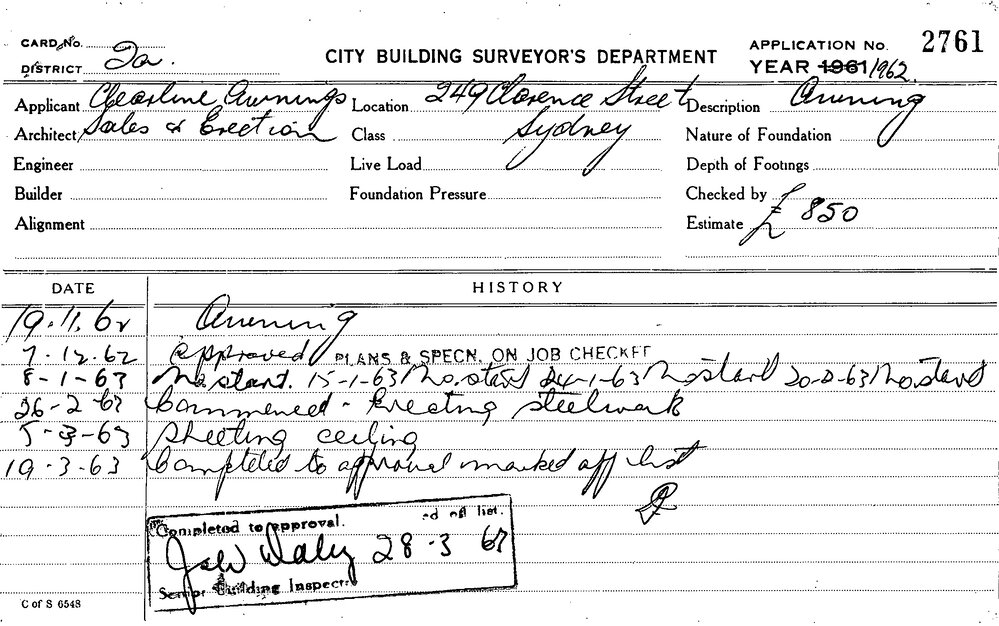 CARD No.
DISTRICT 2a.
CITY BUILDING SURVEYOR'S DEPARTMENT
APPLICATION No. 2761
YEAR 1961/1962.
Applicant Clearline Awnings Location 249 Clarence Street Description Awning
Architect Sales & Erection Class Sydney Nature of Foundation
Engineer Live Load Depth of Footings
Builder Foundation Pressure Checked by
Alignment Estimate £ 850
DATE HISTORY
19.11.62 Awning
7-12.62 Approved PLANS & SPECN. ON JOB CHECKET
8-1-63 No start. 15-1-63 No. start 24-1-63 No start 20-2-63 No. start
26-2-63 Commenced - Erecting steelwork
5-3-63 Sheeting ceiling
19-3-63 Completed to approval marked off list
Completed to approval. ed off list.
Daly 28-3 63
Senior Building Inspector
C of S 6548